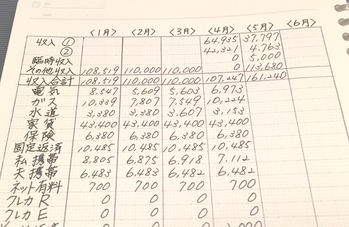 <1月> <2月> <3月> <4月> <5月> <6月>
収入 ① 64,935 37,797
② 42,321 4,763
臨時収入 0 5,000
その他収入 108,519 110,000 110,000 0 113,680
収入合計 108,519 110,000 110,000 107,247 161,240
電気 8,547 5,609 5,603 6,973
ガス 10,339 7,807 7,549 10,224
水道 3,380 3,380 3,607 3,153
家賃 43,400 43,400 43,400 43,400
保険 6,380 6,380 6,380 6,380
固定返済 10,485 10,485 10,485 10,485
私携帯 8,805 6,875 6,918 7,112
夫携帯 6,483 6,482 6,482 6,482
ネット有料 700 700 700 700
クレカ R 0 0 0 0
クレカ E 0 0 0 0
0 0 0